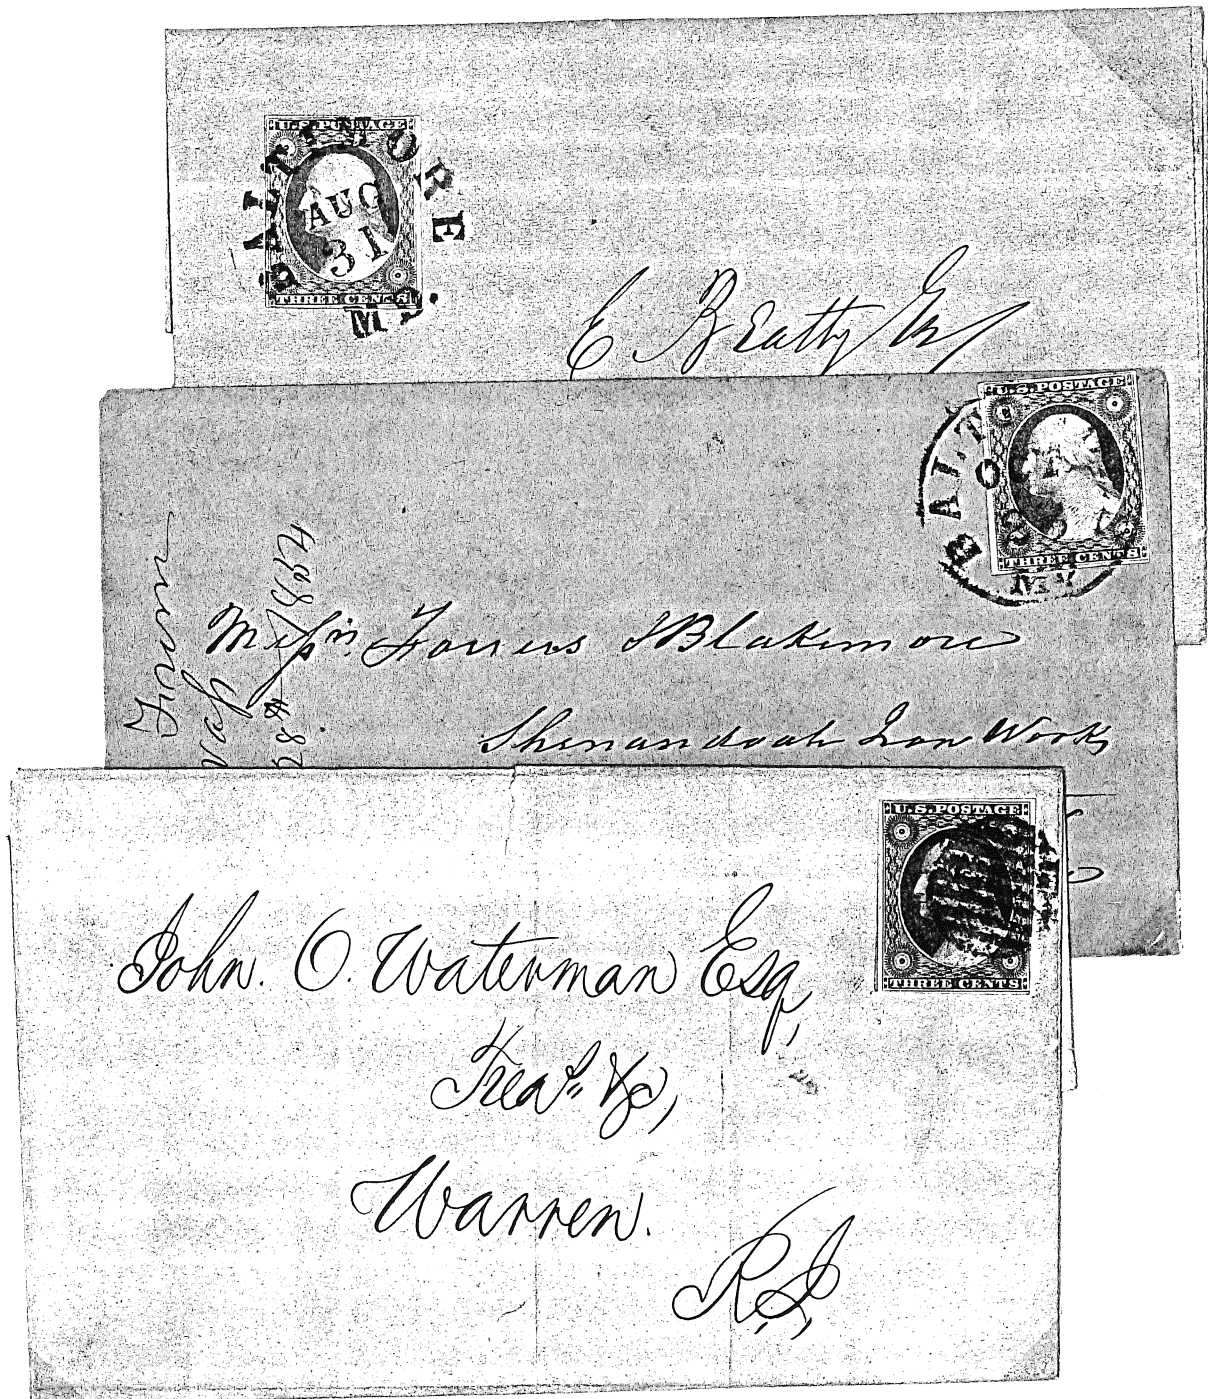 U.S. POSTAGE
BALTIMORE
AUG
31
MD.
THREE CENTS
E Beatty Esq
U.S. POSTAGE
BALT
THREE CENTS
From
Messrs. Forrers & Blakemore
Shenandoah Iron Works
U.S. POSTAGE
THREE CENTS
John. O. Waterman Esq,
Treas. &c,
Warren.
R,I,